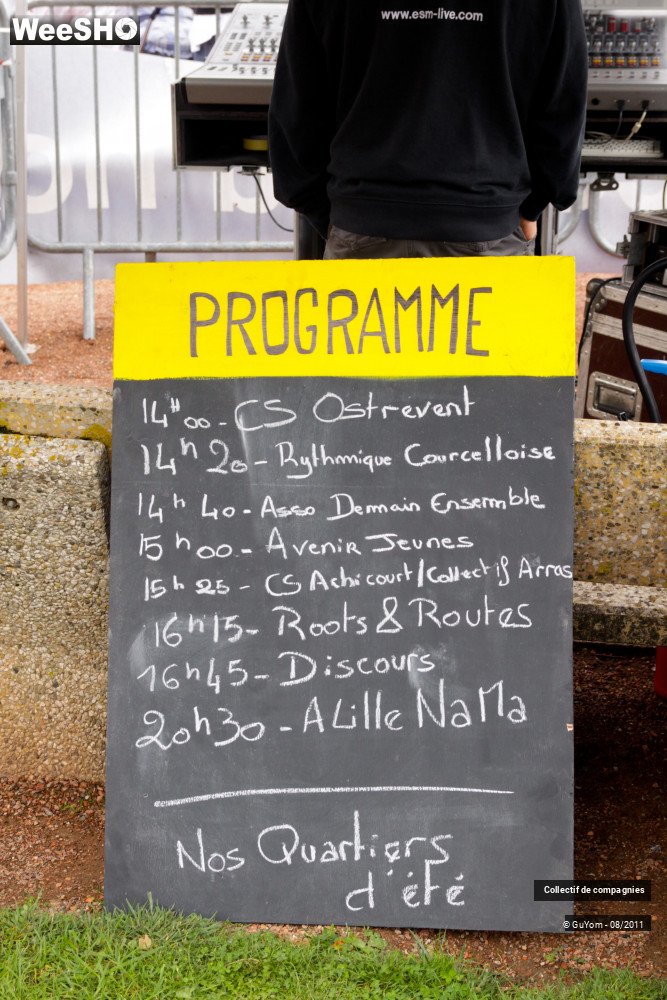 WeeSHO
www.esm-live.com
PROGRAMME
14H00 - CS Ostrevent
14h20 - Rythmique Courcelloise
14h40 - Asso Demain Ensemble
15h00 - Avenir Jeunes
15h25 - CS Achicourt/Collectif Arras
16h15 - Roots & Routes
16h45 - Discours
20h30 - A Lille Na Ma
Nos Quartiers
d'été
Collectif de compagnies
© GuYom - 08/2011